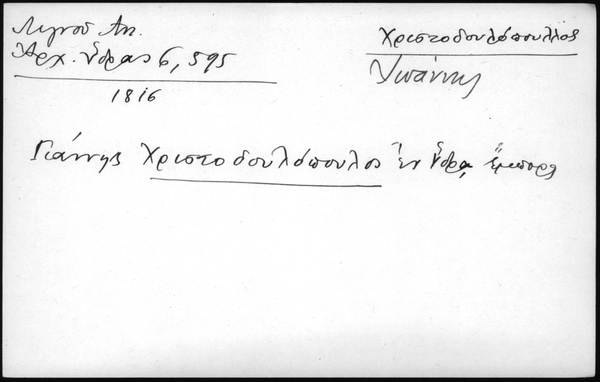 Λιγνού Αν.
Αρχ. Ύδρας 6, 595
1816
Χριστοδουλόπουλλος
Ιωάννης
Γιάννης Χριστοδουλόπουλος ἐν Ὕδρᾳ ἔμπορο